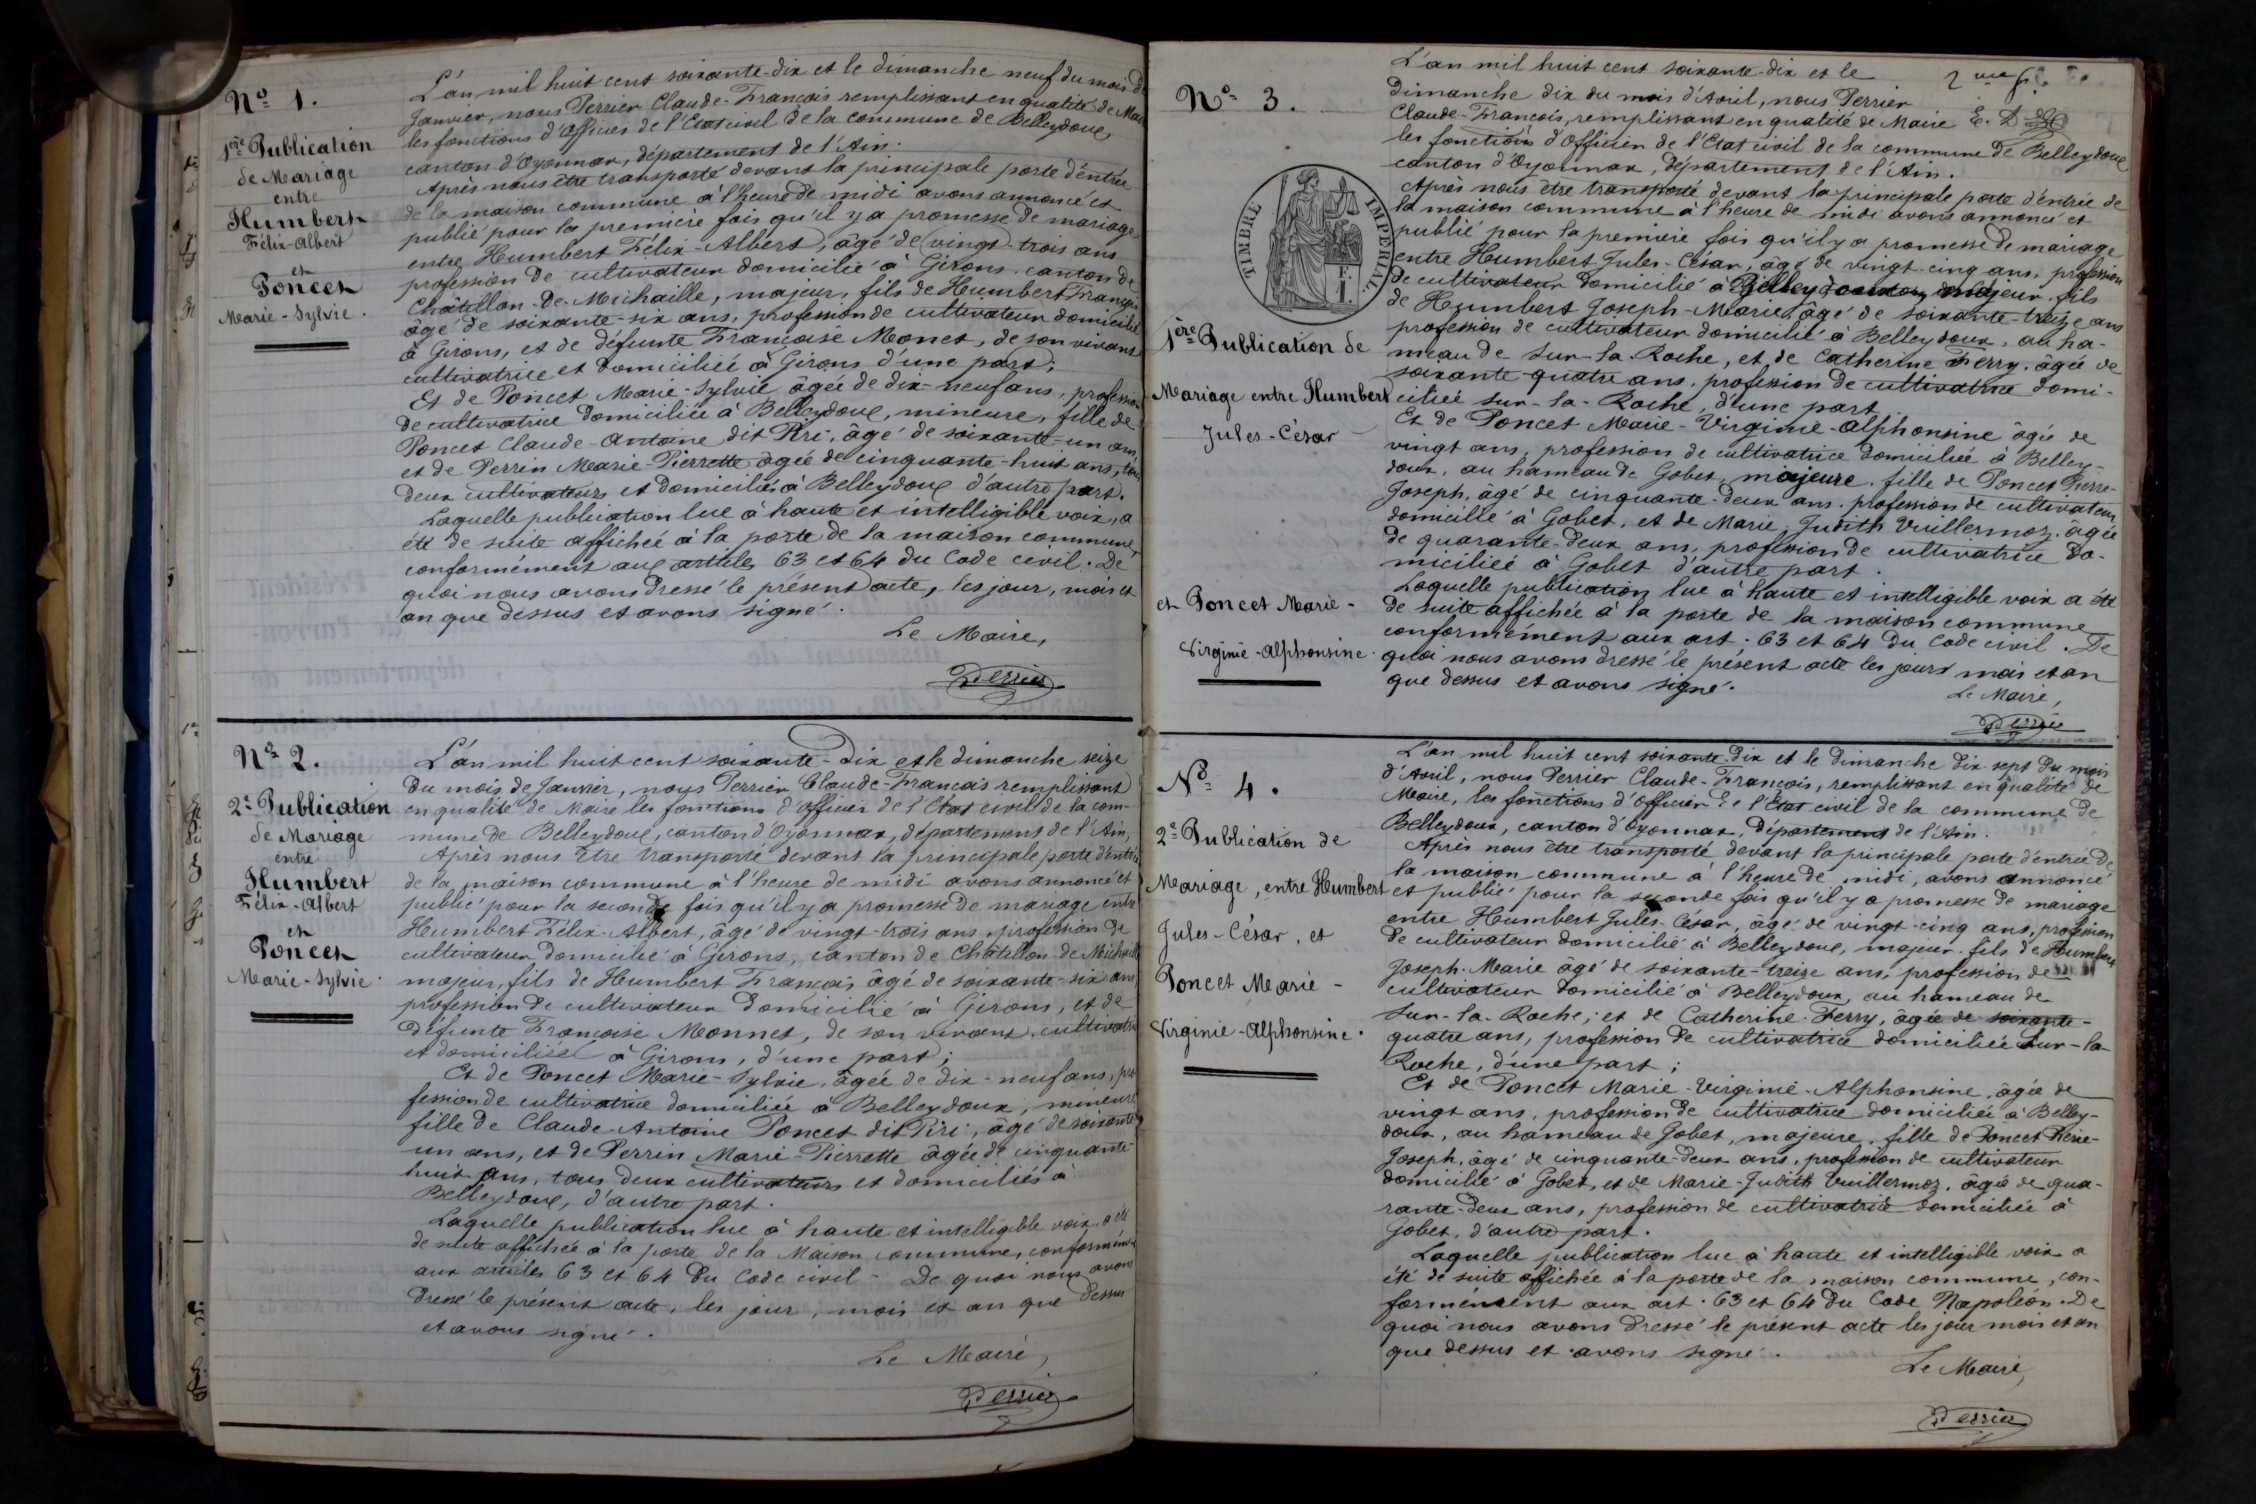 No 1.
1ère Publication
de Mariage
entre
Humbert
Félix-Albert
et
Poncet
Marie-Sylvie.
L'an mil huit cent soixante-dix et le dimanche neuf du mois de
Janvier, nous Perrier Claude-François remplissant en qualité de Maire
les fonctions d'officier de l'Etat civil de la commune de Belleydoux,
canton d'Oyonnax, département de l'Ain.
Après nous être transporté devant la principale porte d'entrée
de la maison commune à l'heure de midi avons annoncé et
publié pour la première fois qu'il y a promesse de mariage
entre Humbert Félix-Albert, âgé de vingt-trois ans
profession de cultivateur domicilié à Girons canton de
Châtillon-de-Michaille, majeur, fils de Humbert François
âgé de soixante-six ans, profession de cultivateur domicilié
à Girons, et de défunte Françoise Monet, de son vivant
cultivatrice et domiciliée à Girons d'une part;
Et de Poncet Marie-Sylvie âgée de dix-neuf ans, profession
de cultivatrice domiciliée à Belleydoux, mineure, fille de
Poncet Claude-Antoine dit Piri, âgé de soixante-un ans,
et de Perrin Marie-Pierrette âgée de cinquante-huit ans, tous
deux cultivateurs et domiciliés à Belleydoux d'autre part.
Laquelle publication lue à haute et intelligible voix, a
été de suite affichée à la porte de la maison commune,
conformément aux articles 63 et 64 du Code civil. De
quoi nous avons dressé le présent acte, les jour, mois et
an que dessus et avons signé.
Le Maire,
Perrier
No 2.
2e Publication
de Mariage
entre
Humbert
Félix-Albert
et
Poncet
Marie-Sylvie.
L'an mil huit cent soixante-dix et le dimanche seize
du mois de Janvier, nous Perrier Claude-François remplissant
en qualité de Maire les fonctions d'officier de l'Etat civil de la com-
mune de Belleydoux, canton d'Oyonnax, département de l'Ain,
Après nous être transporté devant la principale porte d'entrée
de la maison commune à l'heure de midi avons annoncé et
publié pour la seconde fois qu'il y a promesse de mariage entre
Humbert Félix-Albert, âgé de vingt-trois ans, profession de
cultivateur domicilié à Girons, canton de Châtillon de Michaille
majeur, fils de Humbert François âgé de soixante-six ans,
profession de cultivateur domicilié à Girons, et de
défunte Françoise Monnet, de son vivant cultivatrice
et domiciliée à Girons, d'une part;
Et de Poncet Marie-Sylvie, âgée de dix-neuf ans, pro-
fession de cultivatrice domiciliée à Belleydoux, mineure
fille de Claude-Antoine Poncet dit Piri, âgé de soixante
un ans, et de Perrin Marie-Pierrette âgée de cinquante-
huit ans, tous deux cultivateurs et domiciliés à
Belleydoux, d'autre part.
Laquelle publication lue à haute et intelligible voix, a été
de suite affichée à la porte de la Maison commune, conformément
aux articles 63 et 64 du Code civil - De quoi nous avons
dressé le présent acte, les jour, mois et an que dessus
et avons signé.
Le Maire,
Perrier
No 3.
TIMBRE IMPERIAL
1ère Publication de
Mariage entre Humbert
Jules-César
et Poncet Marie-
Virginie-Alphonsine.
L'an mil huit cent soixante-dix et le
dimanche dix du mois d'Avril, nous Perrier
Claude-François, remplissant en qualité de Maire
les fonctions d'Officier de l'Etat civil de la commune de Belleydoux
canton d'Oyonnax, département de l'Ain.
Après nous être transporté devant la principale porte d'entrée de
la maison commune à l'heure de midi avons annoncé et
publié pour la première fois qu'il y a promesse de mariage
entre Humbert Jules-César, âgé de vingt-cinq ans, profession
de cultivateur domicilié à Belleydoux, majeur, fils
de Humbert Joseph-Marie, âgé de soixante-treize ans
profession de cultivateur domicilié à Belleydoux, au ha-
meau de Sur-la-Roche, et de Catherine Ferry, âgée de
soixante-quatre ans, profession de cultivatrice domi-
ciliée sur-la-Roche, d'une part
Et de Poncet Marie-Virginie-Alphonsine âgée de
vingt ans, profession de cultivatrice domiciliée à Belley-
doux, au hameau de Gobet, majeure, fille de Poncet Pierre-
Joseph, âgé de cinquante-deux ans, profession de cultivateur
domicilié à Gobet, et de Marie-Judith Vuillermoz, âgée
de quarante-deux ans, profession de cultivatrice do-
miciliée à Gobet d'autre part.
Laquelle publication lue à haute et intelligible voix a été
de suite affichée à la porte de la maison commune
conformément aux art. 63 et 64 du Code civil. De
quoi nous avons dressé le présent acte les jours mois et an
que dessus et avons signé.
Le Maire,
Perrier
No 4.
2e Publication de
Mariage, entre Humbert
Jules-César, et
Poncet Marie-
Virginie-Alphonsine.
L'an mil huit cent soixante-dix et le dimanche dix-sept du mois
d'Avril, nous Perrier Claude-François, remplissant en qualité de
Maire, les fonctions d'Officier de l'Etat civil de la commune de
Belleydoux, canton d'Oyonnax, département de l'Ain.
Après nous être transporté devant la principale porte d'entrée de
la maison commune à l'heure de midi, avons annoncé
et publié pour la seconde fois qu'il y a promesse de mariage
entre Humbert Jules-César, âgé de vingt-cinq ans, profession
de cultivateur domicilié à Belleydoux, majeur, fils de Humbert
Joseph-Marie âgé de soixante-treize ans, profession de
cultivateur domicilié à Belleydoux, au hameau de
Sur-la-Roche; et de Catherine Ferry, âgée de soixante-
quatre ans, profession de cultivatrice domiciliée Sur-la-
Roche, d'une part;
Et de Poncet Marie-Virginie-Alphonsine, âgée de
vingt ans, profession de cultivatrice domiciliée à Belley-
doux, au hameau de Gobet, majeure, fille de Poncet Pierre-
Joseph, âgé de cinquante-deux ans, profession de cultivateur
domicilié à Gobet, et de Marie-Judith Vuillermoz, âgée de qua-
rante-deux ans, profession de cultivatrice domiciliée à
Gobet, d'autre part.
Laquelle publication lue à haute et intelligible voix a
été de suite affichée à la porte de la maison commune, con-
formément aux art. 63 et 64 du Code Napoléon. De
quoi nous avons dressé le présent acte les jour mois et an
que dessus et avons signé.
Le Maire,
Perrier